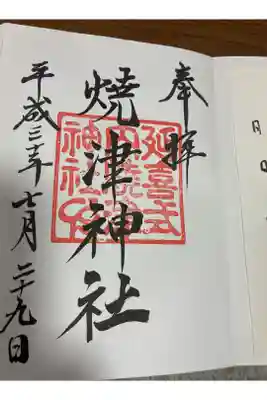 奉拝
焼津神社
平成三十年七月二十九日
延喜式
神社
月